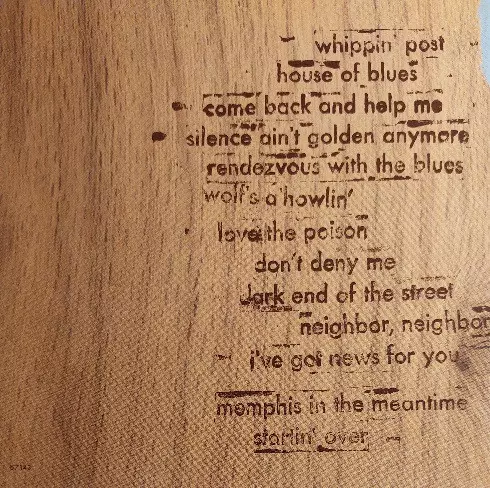 whippin' post
house of blues
come back and help me
silence ain't golden anymore
rendezvous with the blues
wolf's a'howlin'
love the poison
don't deny me
dark end of the street
neighbor, neighbor
i've got news for you
memphis in the meantime
startin' over